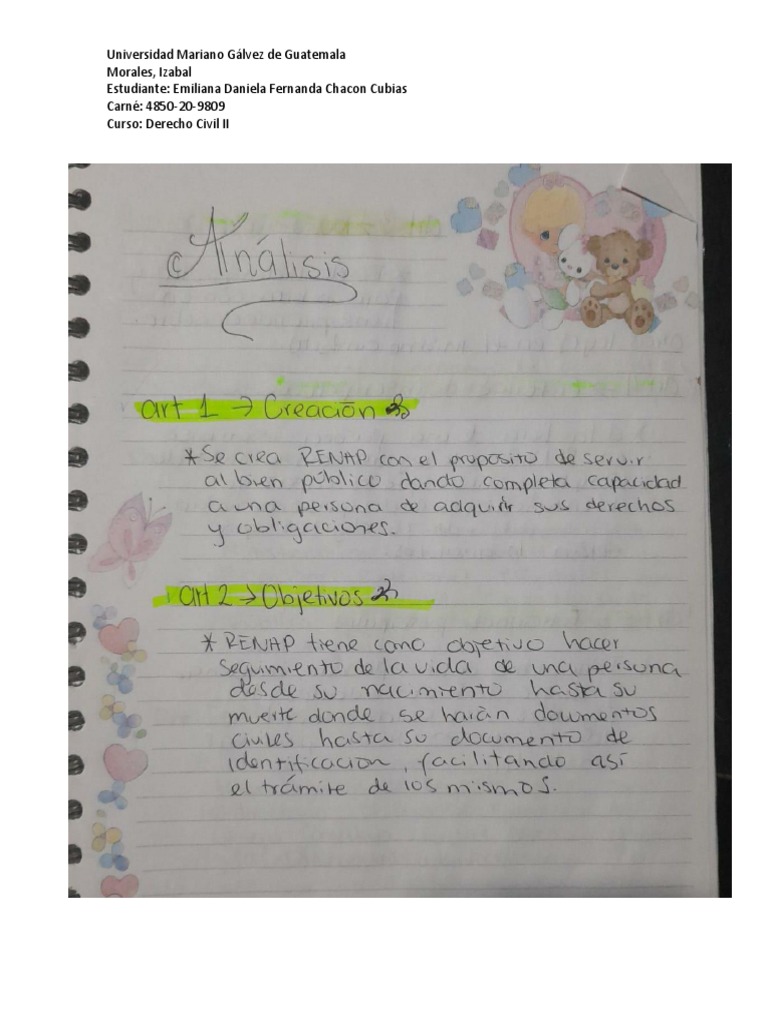 Universidad Mariano Gálvez de Guatemala
Morales, Izabal
Estudiante: Emiliana Daniela Fernanda Chacon Cubias
Carné: 4850-20-9809
Curso: Derecho Civil II
Análisis
art 1 → Creación
* Se crea RENAP con el proposito de servir
al bien público dando completa capacidad
a una persona de adquirir sus derechos
y obligaciones.
art 2 → Objetivos
* RENAP tiene como objetivo hacer
seguimiento de la vida de una persona
desde su nacimiento hasta su
muerte donde se harán documentos
civiles hasta su documento de
identificacion, facilitando así
el trámite de los mismos.